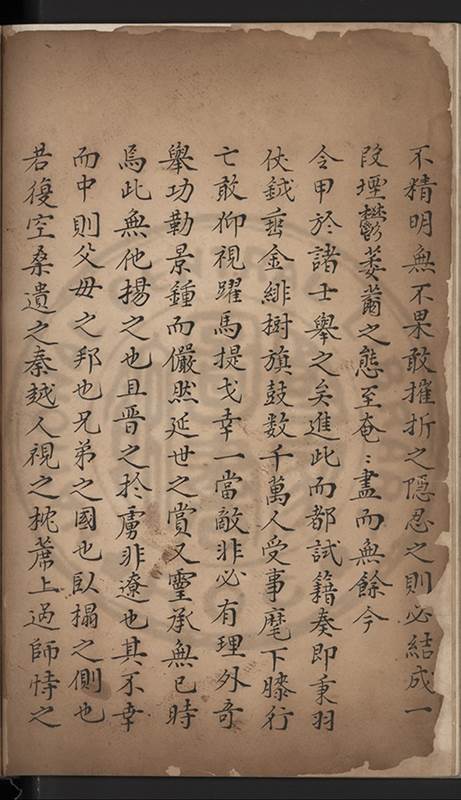 不精明無不果敢摧折之隱忍之則必結成一
段堙鬱萎薾之態至奄〻盡而無餘今
今甲於諸士舉之矣進此而都試籍奏即秉羽
仗鉞垂金緋樹旗鼓数千萬人受事麾下膝行
亡敢仰視躍馬提戈幸一當敵非必有理外奇
舉功勒景鍾而儼然延世之賞又靈承無已時
焉此無他揚之也且晋之扵虜非遼也其不幸
而中則父母之邦也兄弟之國也臥榻之側也
若復空桑遺之秦越人視之枕蓆上過師恃之